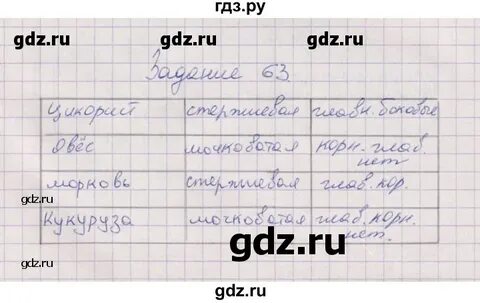 гдз.ру
gdz.ru gdz.ru
Задание 63
цикорий стержневая главн. боковые
Овёс мочковатая корн. глав. нет
морковь стержневая глав. кор.
Кукуруза мочковатая глав. корн. нет.
gdz.ru gdz.ru
gdz.ru
gdz.ru gdz.ru